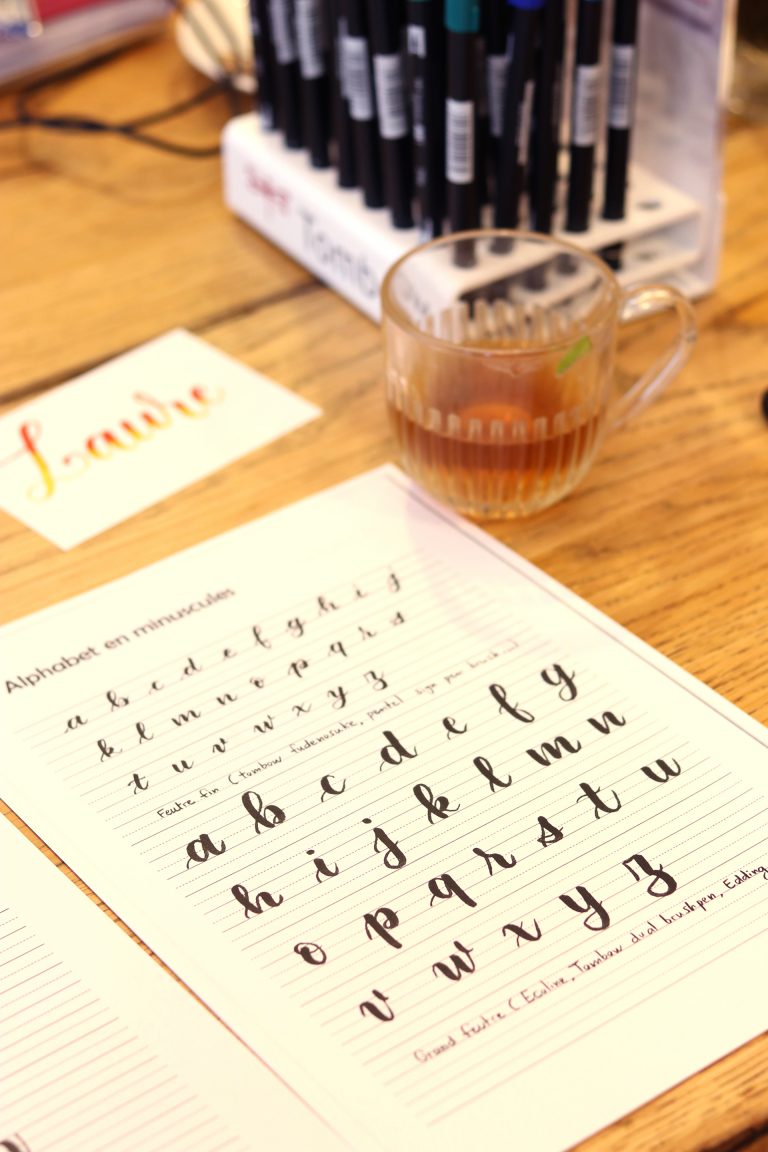 Tombow
Laure
Alphabet en minuscules
a b c d e f g h i j
k l m n o p q r s
t u v w x y z
Feutre fin (tombow fudenosuke, pentel sign pen brush
a b c d e f g
h i j k l m n
o p q r s t u
v w x y z
Grand feutre (Ecoline, Tombow dual brushpen, Edding